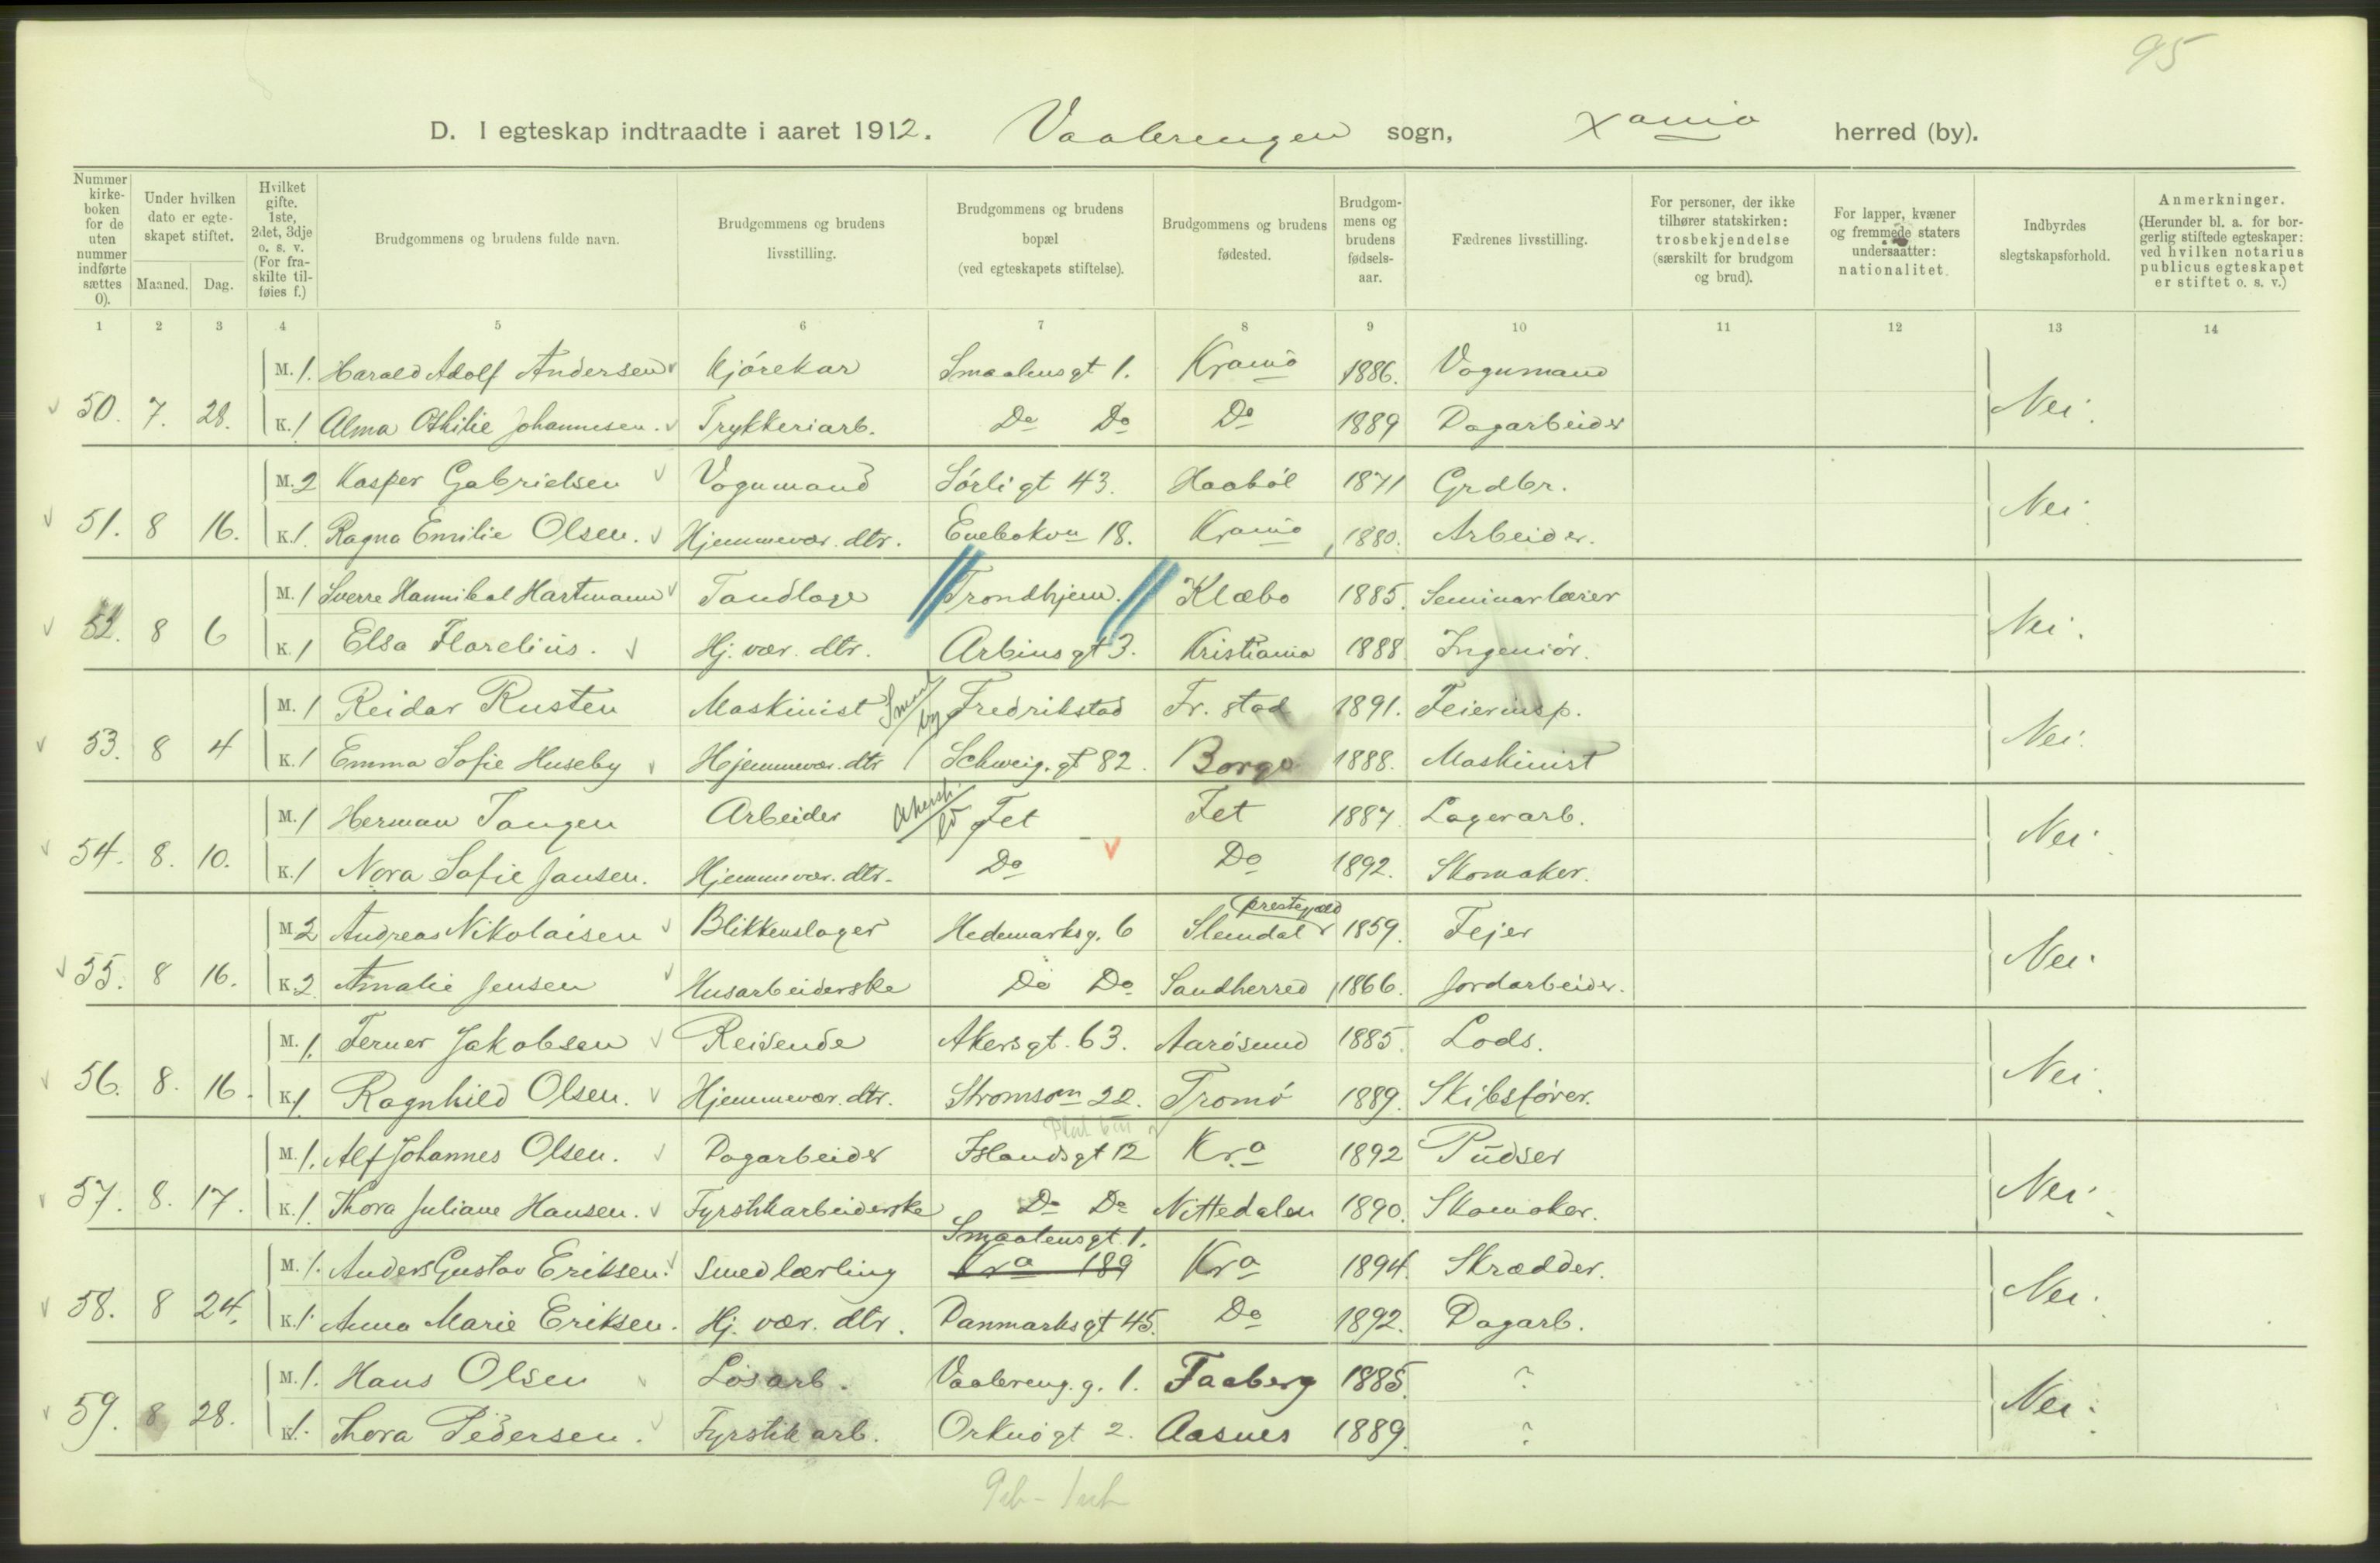 95
D. I egteskap indtraadte i aaret 1912. Vaalerengen sogn, Xania herred (by).
Nummer kirke-boken for de uten nummer indførte sættes 0). Under hvilken dato er egte-skapet stiftet. Maaned. Dag. Hvilket gifte. 1ste, 2det, 3dje o. s. v. (For fra-skilte til-føies f.) Brudgommens og brudens fulde navn. Brudgommens og brudens livsstilling. Brudgommens og brudens bopæl (ved egteskapets stiftelse). Brudgommens og brudens fødested. Brudgom-mens og brudens fødsels-aar. Fædrenes livsstilling. For personer, der ikke tilhører statskirken: trosbekjendelse (særskilt for brudgom og brud). For lapper, kvæner og fremmede staters undersaatter: nationalitet. Indbyrdes slegtskapsforhold. Anmerkninger. (Herunder bl. a. for bor-gerlig stiftede egteskaper: ved hvilken notarius publicus egteskapet er stiftet o. s. v.)
1 2 3 4 5 6 7 8 9 10 11 12 13 14
M. 1. Harald Adolf Andersen Kjörekar Smaalensgt 1. Krania 1886. Vognmand
50. 7. 28. K. 1 Alma Othilie Johannesen. Trykkeriarb. Do Do Do 1889 Dagarbeider Nei.
M. 2 Kasper Gabrielsen Vognmand Sörligt 43. Haaböl 1871 Grdbr.
51. 8 16. K. 1. Ragna Emilie Olsen. Hjemmevær. dtr. Enebakvn 18. Krania 1880. Arbeider. Nei.
M. 1 Sverre Hannibal Hartmann Tandlæge Trondhjem. Klæbo 1885. Seminarlærer
52. 8 6 K. 1 Elsa Florelius. Hj. vær. dtr. Arbinsgt 3. Kristiania 1888. Ingeniör. Nei.
M. 1 Reidar Rusten Maskinist Smaal. by Fredrikstad Fr. stad 1891. Feierinsp.
53. 8 4 K. 1 Emma Sofie Huseby Hjemmevær. dtr Schweig. gt 82. Borge 1888. Maskinist Nei.
M. 1 Herman Tangen Arbeider Akersh. ld Fet Fet 1887 Lagerarb.
54. 8. 10. K. 1 Nora Sofie Jansen. Hjemmevær. dtr. Do Do 1892. Skomaker. Nei.
M. 2 Andreas Nikolaisen Blikkenslager Hedemarksg. 6 Slemdal prestegjeld 1859. Fejer
55. 8 16. K. 2 Amalie Jensen Husarbeiderske Do Do Sandherred 1866. Jordarbeider. Nei.
M. 1. Ferner Jakobsen Reisende Akersgt. 63. Aarösund 1885. Lods.
56. 8. 16. K. 1 Ragnhild Olsen. Hjemmevær. dtr. Stromsvn 22. Tromö 1889. Skibsförer. Nei.
M. 1. Alf Johannes Olsen. Dagarbeider Islandsgt 12 Kra 1892 Pudser
57. 8. 17. K. 1. Thora Juliane Hansen. Fyrstikkarbeiderske Do Do Nittedalen 1890. Skomaker. Nei.
Smaalensgt. 1.
M. 1. Anders Gustav Eriksen. Smedlærling Kra 189 Kra 1894. Skrædder.
58. 8 24. K. 1. Anna Marie Eriksen. Hj. vær. dtr. Danmarksgt 45. Do 1892. Dagarb. Nei.
M. 1. Hans Olsen Løsarb. Vaalereng. g. 1. Faaberg 1885. ?
59. 8 28. K. 1. Thora Pedersen. Fyrstik arb. Orknögt 2. Aasnes 1889. ? Nei.